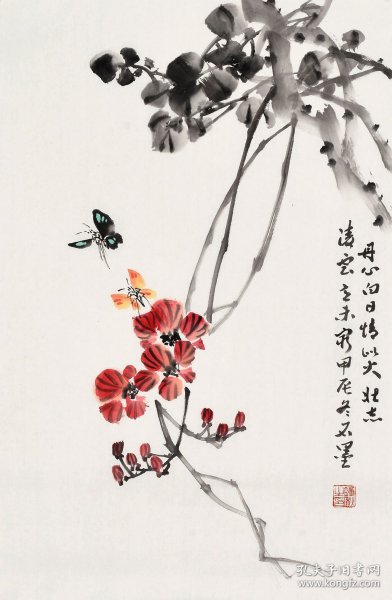 丹心向日情似火壮志
凌云意未穷甲辰冬石墨
孔夫子旧书网